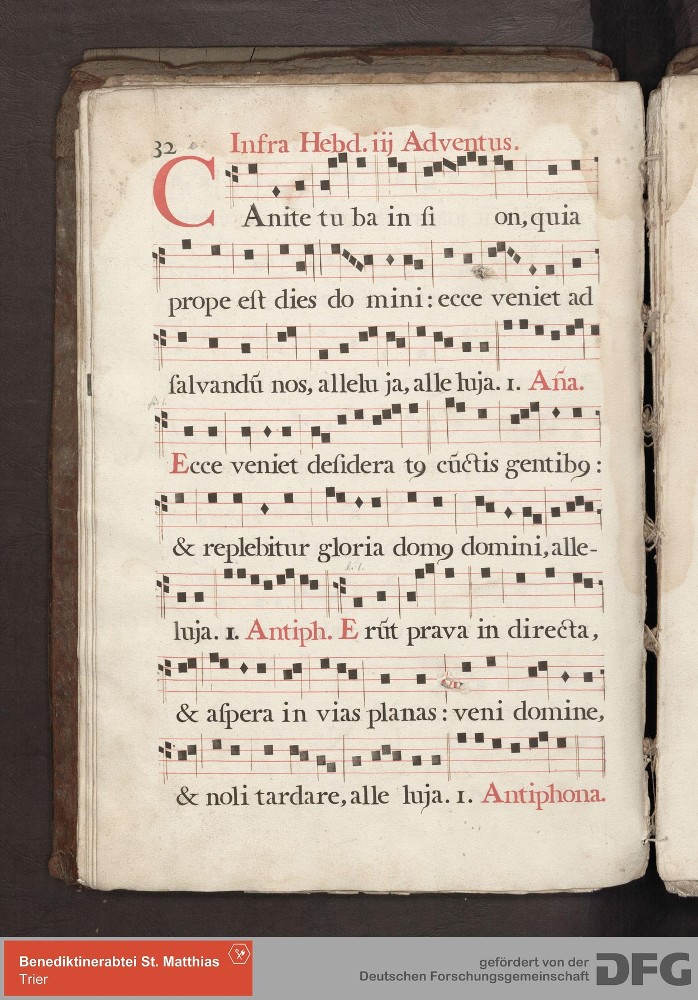 32 Infra Hebd. iij Adventus.
CAnite tu ba in ſi on, quia
prope eſt dies do mini: ecce veniet ad
ſalvandũ nos, allelu ja, alle luja. 1. Aña.
Ecce veniet deſidera tꝯ cũctis gentibꝯ:
& replebitur gloria domꝯ domini, alle-
luja. 1. Antiph. E rũt prava in directa,
& aſpera in vias planas: veni domine,
& noli tardare, alle luja. 1. Antiphona.
Benediktinerabtei St. Matthias
Trier
gefördert von der
Deutschen Forschungsgemeinschaft DFG